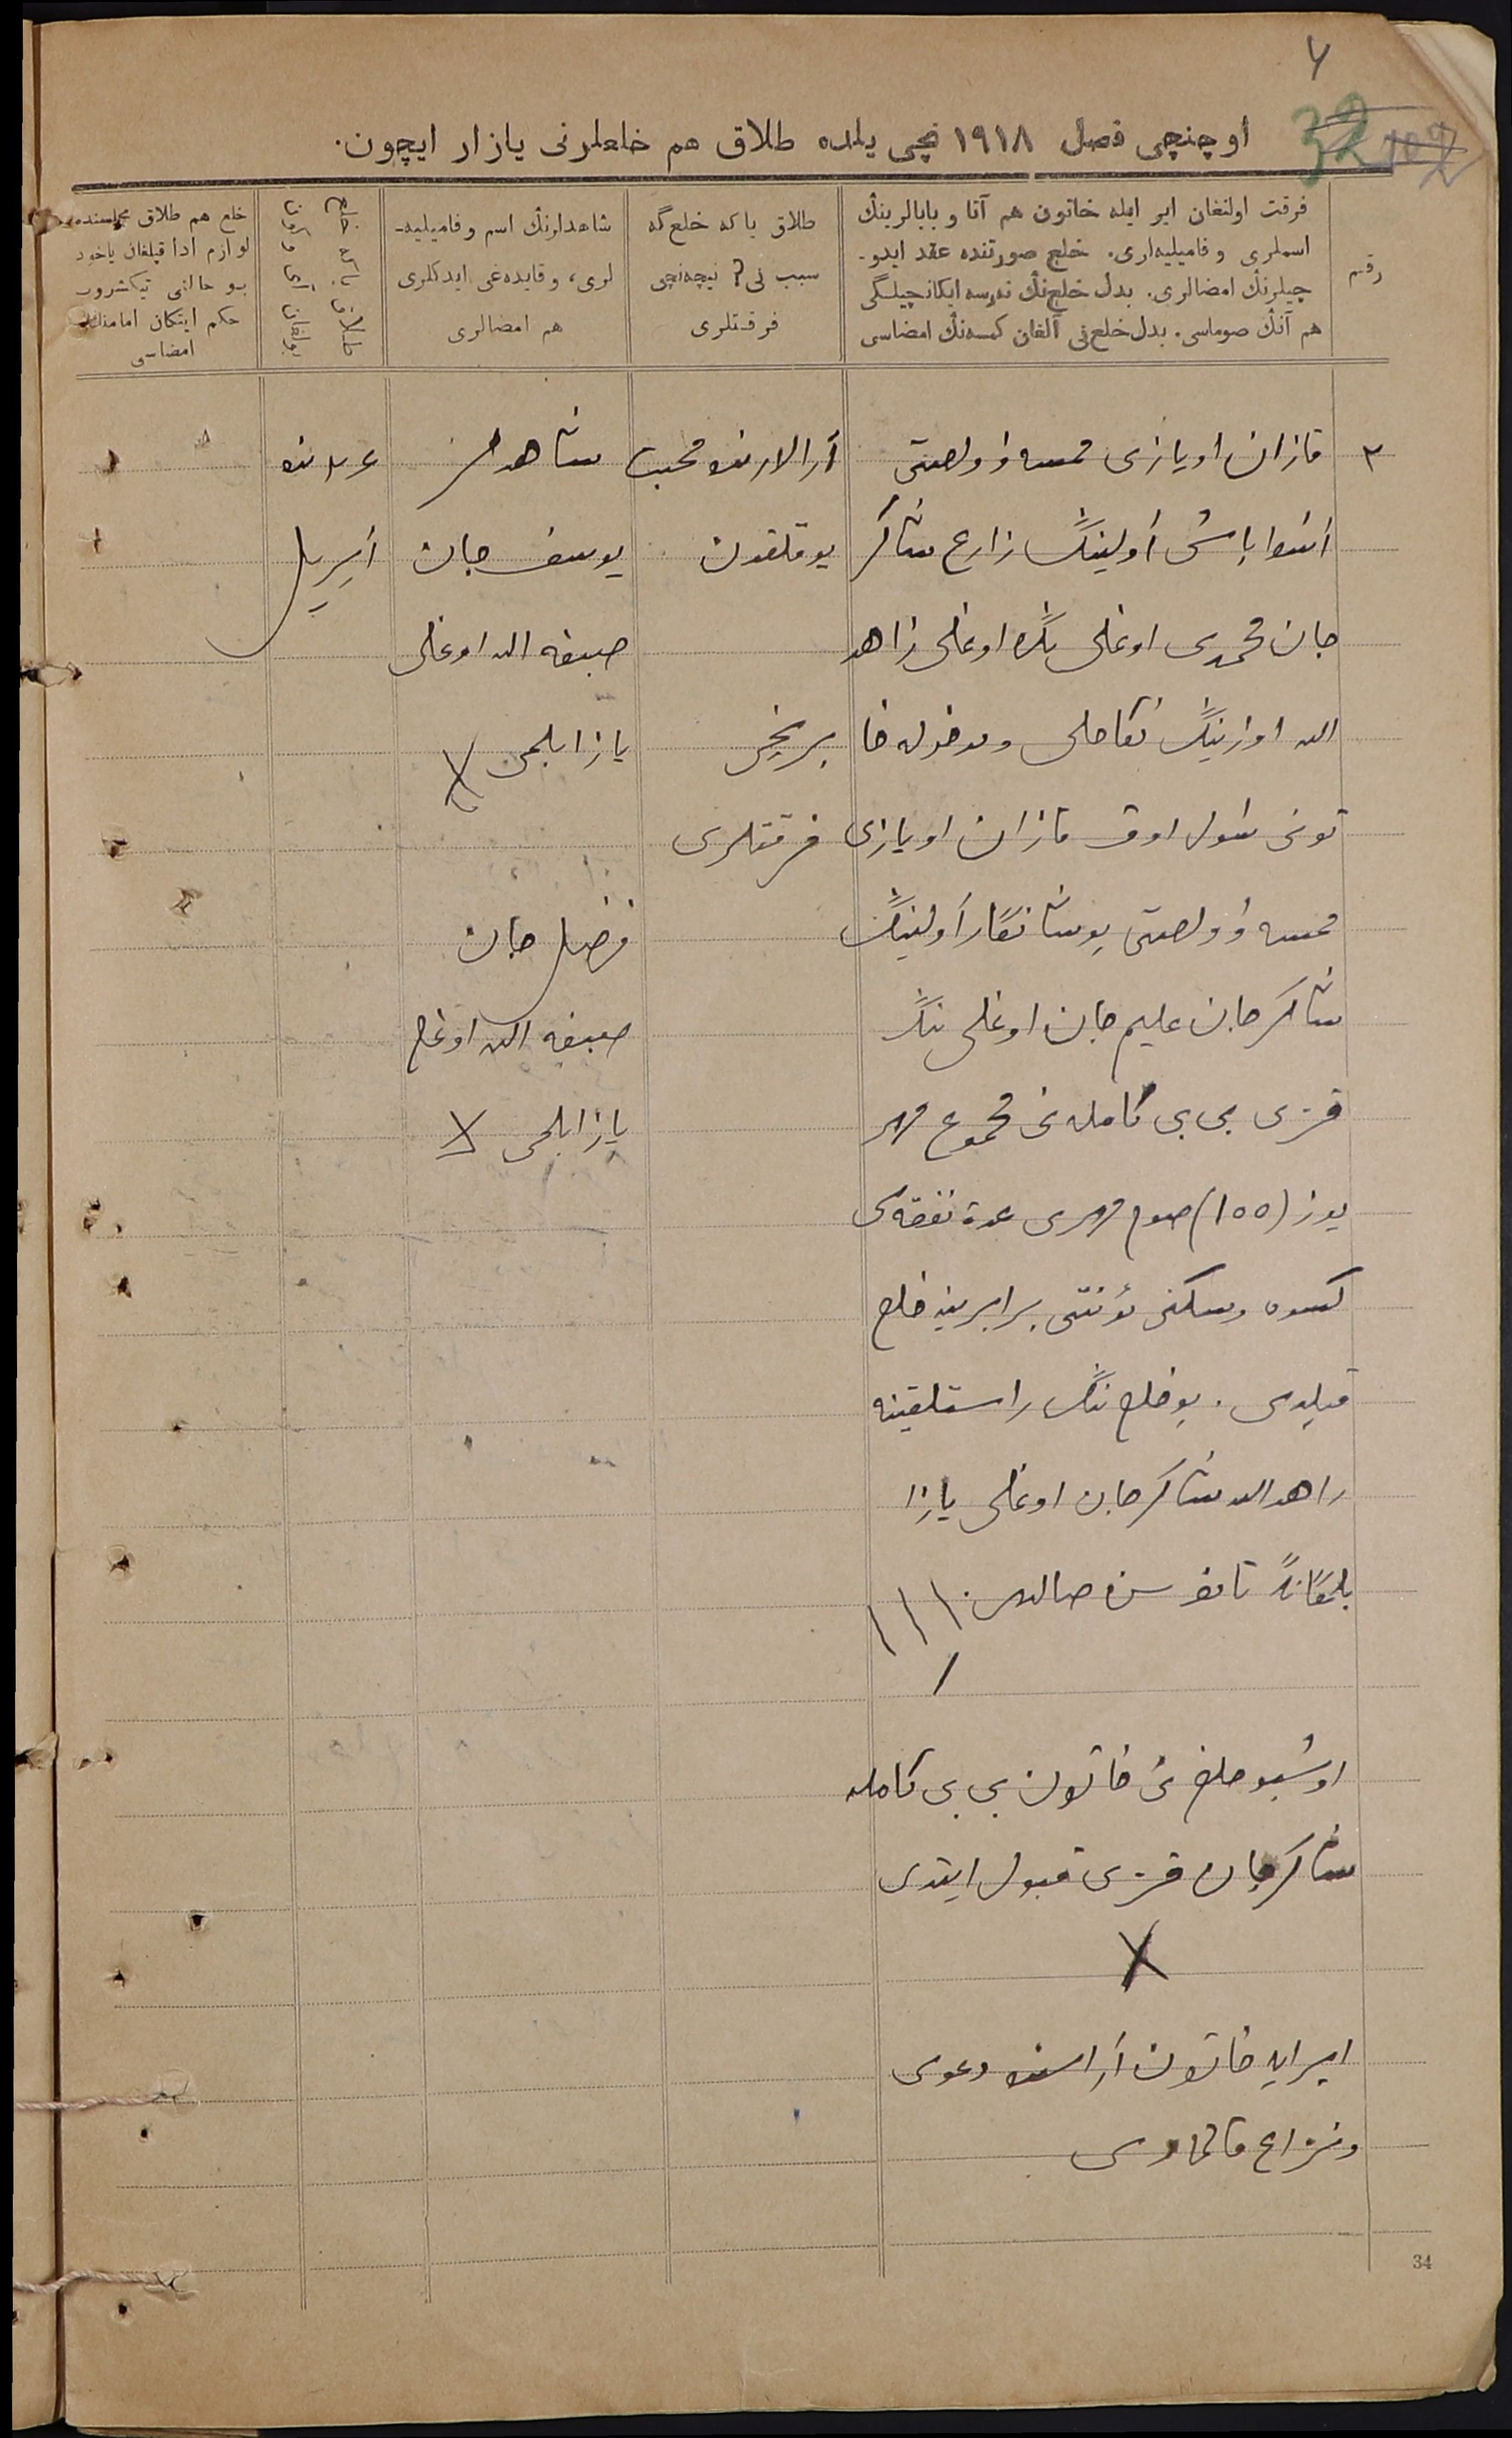 ۷
32 107
اوچنچی فصل ۱۹۱۸ نچی یلده طلاق هم خلعلرنی یازار ایچون.
رقم
فرقت اولنغان ایر ایله خاتون هم آتا و بابالرینڭ
اسملری و فامیلیه‌لری. خلع صورتنده عقد ایدو-
چیلرنڭ امضالری. بدل خلع‌نڭ نه‌رسه ایکانچیلگی
هم آنڭ صوماسی. بدل خلع‌نی آلغان کمسه‌نڭ امضاسی
طلاق یاکه خلع‌گه
سبب نی؟ نیچه‌نچی
فرقتلری
شاهدلرنڭ اسم و فامیلیه-
لری، و قایده‌غی ایدکلری
هم امضالری
طلاق یاکه خلع
بولغان آی و کون
خلع هم طلاق مجلسنده
لوازم ادا قیلغان یاخود
بو حالنی تیکشروب
حکم ایتکان امامنڭ
امضاسی
۲
قازان اویازی ممسه وولصتی
باشی اولینڭ زارع شاکر
جان محمدی اوغلی نڭ اوغلی زاهد
الله اوزینڭ نکاحلی ومدخوله خا
تونی شول اوق قازان اویازی
ممسه وولصتی یوشانکار اولینڭ
شاکرجان علیم جان اوغلی ننڭ
قزی بی بی کامله نی مجموع مهر
یوز (100) صوم مهری عدة نفقه‌سی
کسوه وسکنی مؤنتی برابرینه خلع
قیلدی. بو خلع ننڭ راستلقینه
زاهدالله شاکرجان اوغلی یازا
بلمگانگه تامغاسن صالدی. ۱۱۱
/
اوشبو خلع نی خاتون بی بی کامله
شاکرجان قزی قبول ایتدی
X
ایر ایله خاتون آراسنده دعوی
ونزاع قالمادی
آرالارنده محبت
یوقلقدن
برنچی
فرقتلری
شاهدلر
یوسف جان
صبغة الله اوغلی
یازا بلمی X
فضل جان
صبغة الله اوغلی
یازا بلمی X
۴ نده
آپریل
34